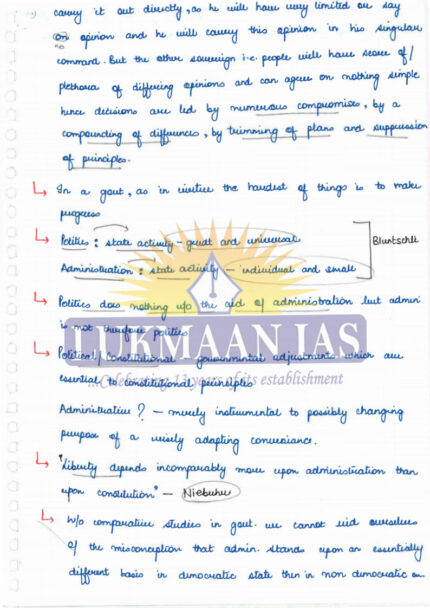 carry it out directly, as he will have very limited or say
on opinion and he will carry this opinion in his singular
no
command. But the other sovereign i.e. people will have score of/
plethora of differing opinions and can agree on nothing simple
hence decisions are led by numerous compromises, by a
compounding of differences, by trimming of plans and suppression
of principles.
In a govt, as in virtue the hardest of things is to make
progress
Politics : state activity - great and universal
Bluntschli
Administration : state activity - individual and small
Politics does nothing w/o the aid of administration but admin
is not therefore politics
LUKMAAN IAS
Political / Constitutional - governmental adjustments which are
essential to constitutional principles
...Celebrating 12 years of its establishment
Administrative ? - merely instrumental to possibly changing
purpose of a wisely adapting convenience.
"Liberty depends incomparably more upon administration than
upon constitution" - Niebuhr
W/o comparative studies in govt. we cannot rid ourselves
of the misconception that admin. stands upon an essentially
different basis in democratic state then in non democratic on